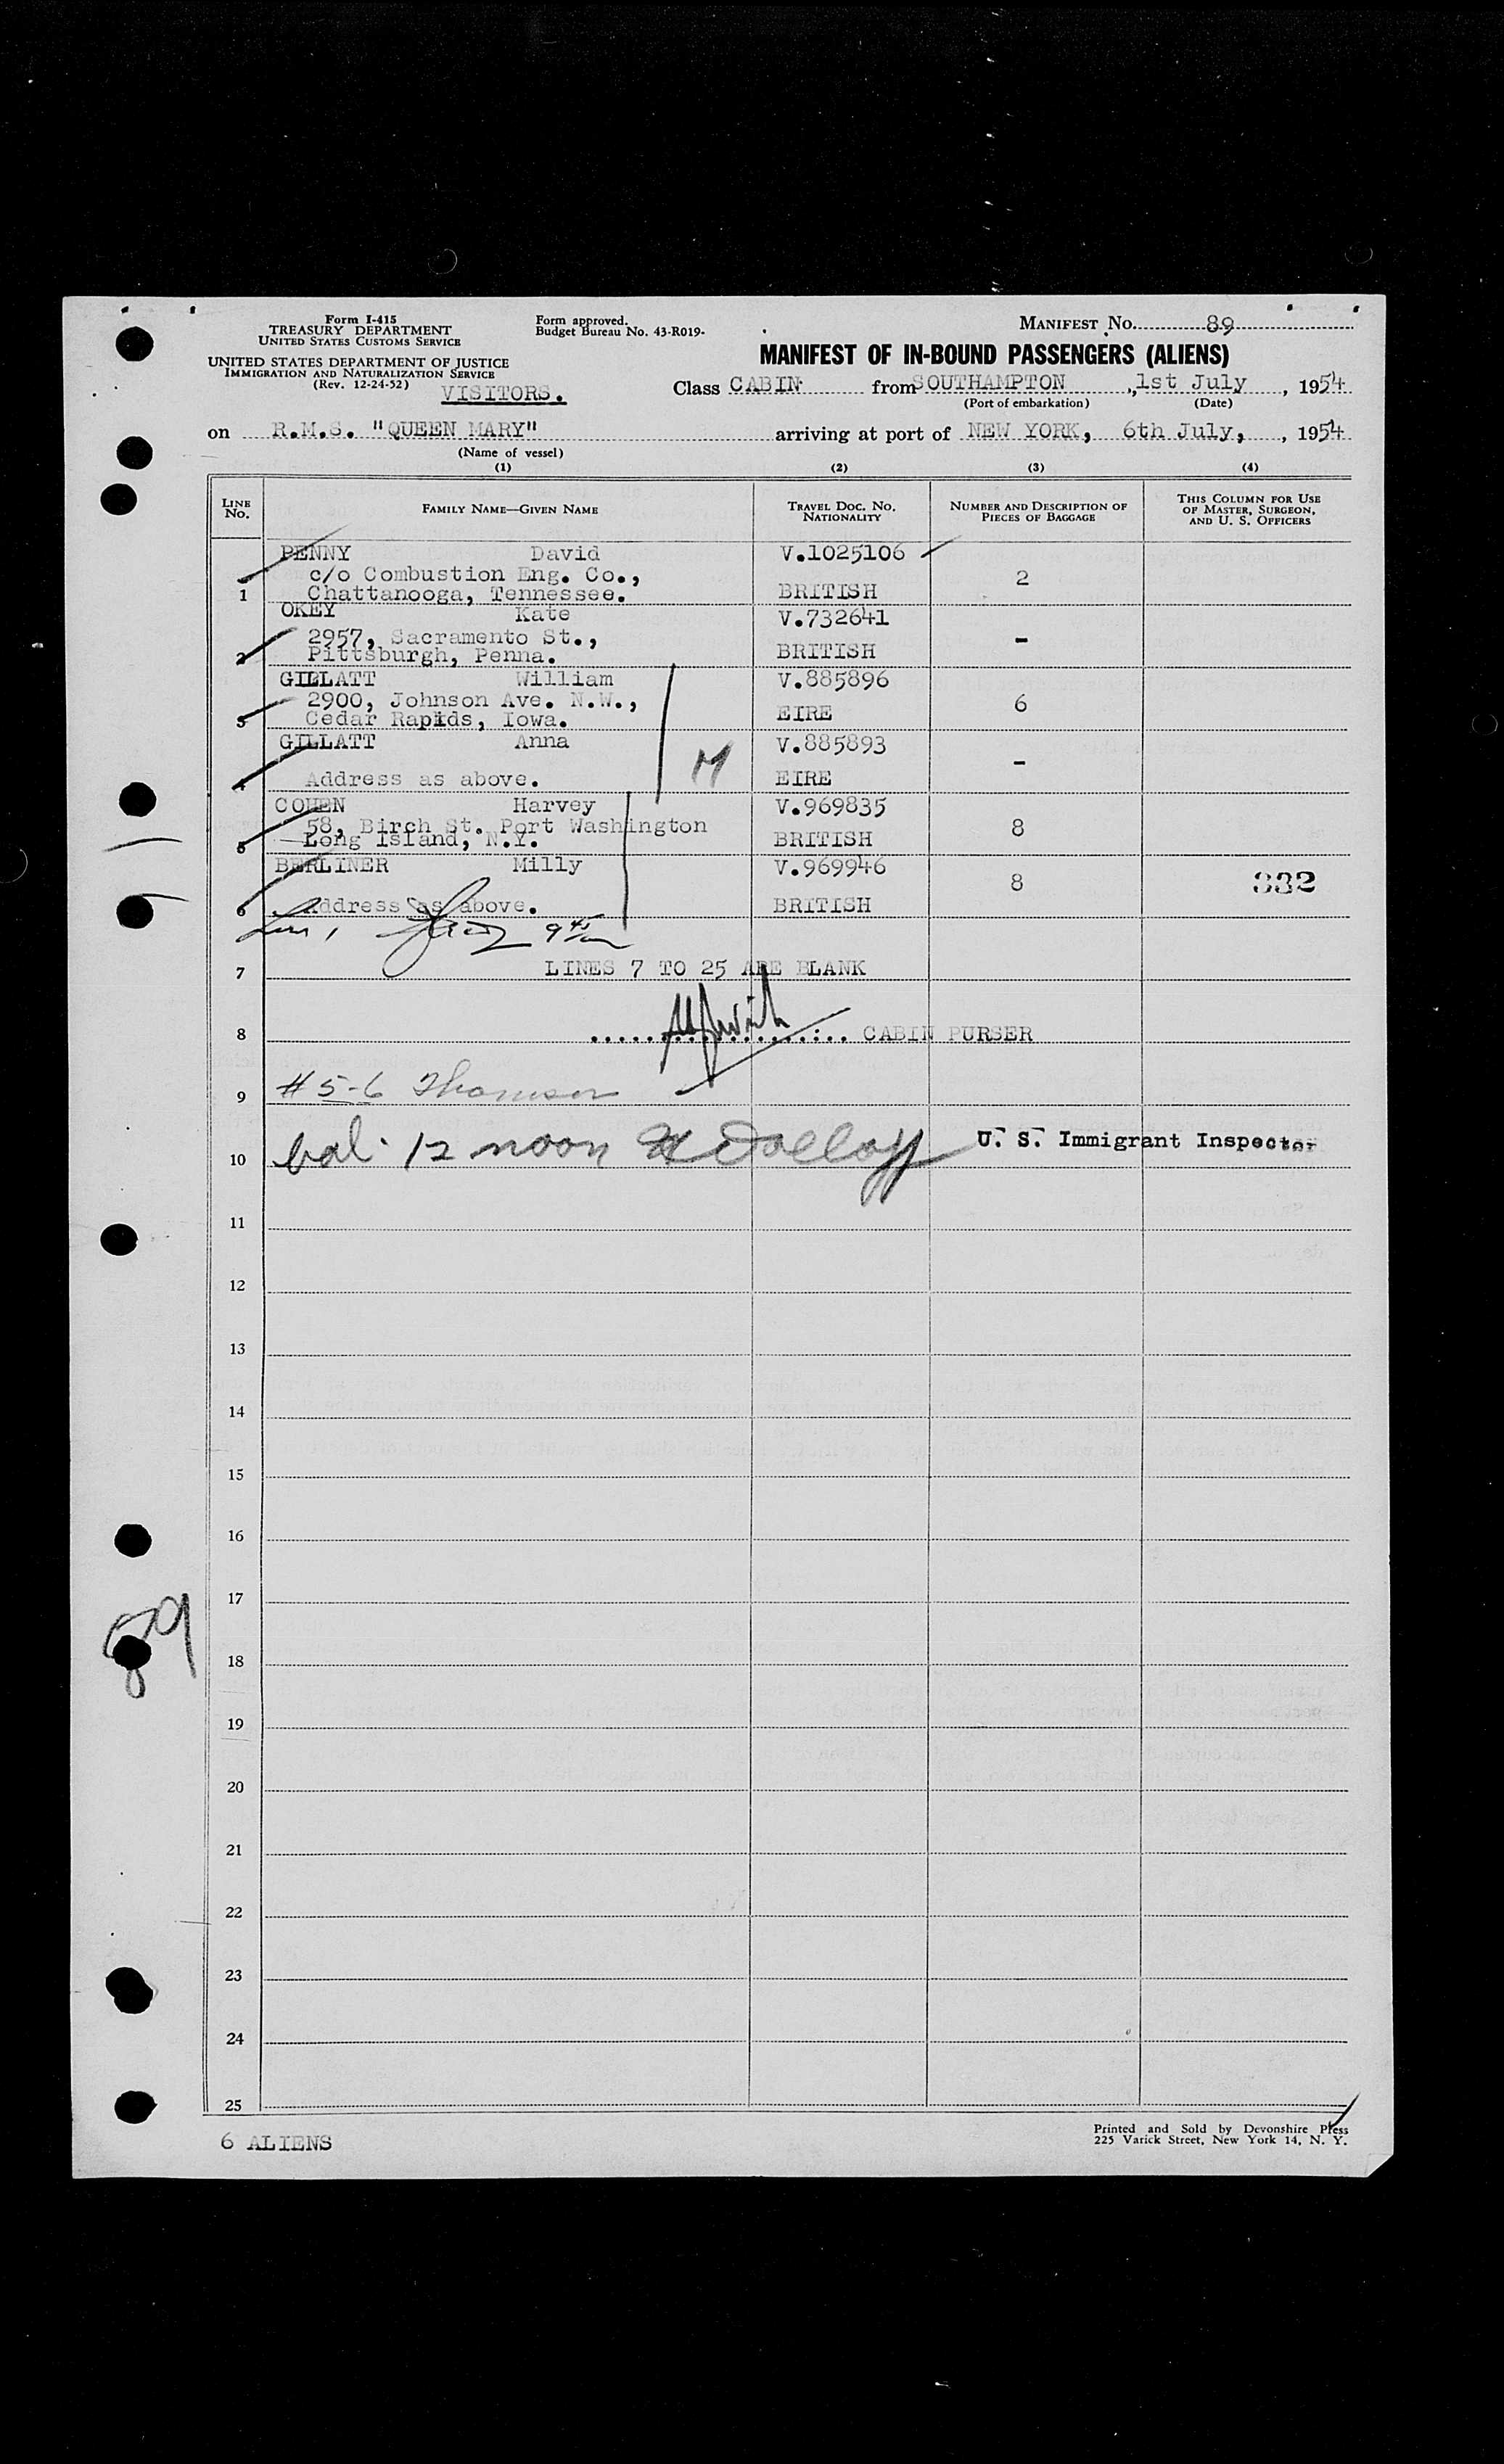 Form I-415
TREASURY DEPARTMENT
UNITED STATES CUSTOMS SERVICE
UNITED STATES DEPARTMENT OF JUSTICE
IMMIGRATION AND NATURALIZATION SERVICE
(Rev. 12-24-52)
VISITORS.
Form approved.
Budget Bureau No. 43-R019-
MANIFEST NO. 89
MANIFEST OF IN-BOUND PASSENGERS (ALIENS)
Class CABIN from SOUTHAMPTON, 1st July, 1954
(Port of embarkation) (Date)
on R.M.S. "QUEEN MARY" arriving at port of NEW YORK, 6th July, , 1954
(Name of vessel)
(1) (2) (3) (4)
LINE NO.
FAMILY NAME—GIVEN NAME
TRAVEL DOC. NO. NATIONALITY
NUMBER AND DESCRIPTION OF PIECES OF BAGGAGE
THIS COLUMN FOR USE OF MASTER, SURGEON, AND U. S. OFFICERS
PENNY David V.1025106
c/o Combustion Eng. Co., 2
1 Chattanooga, Tennessee. BRITISH
OKEY Kate V.732641
2957, Sacramento St., -
2 Pittsburgh, Penna. BRITISH
GILLATT William V.885896
2900, Johnson Ave. N.W., 6
3 Cedar Rapids, Iowa. EIRE
GILLATT Anna V.885893
M -
4 Address as above. EIRE
COHEN Harvey V.969835
58, Birch St. Port Washington 8
5 Long Island, N.Y. BRITISH
BERLINER Milly V.969946
8 332
6 Address as above. BRITISH
7 LINES 7 TO 25 ARE BLANK
8 CABIN PURSER
9 # 5-6 Thomson
10 bal. 12 noon U. S. Immigrant Inspector
11
12
13
14
15
16
17
89
18
19
20
21
22
23
24
25
6 ALIENS
Printed and Sold by Devonshire Press
225 Varick Street, New York 14, N. Y.